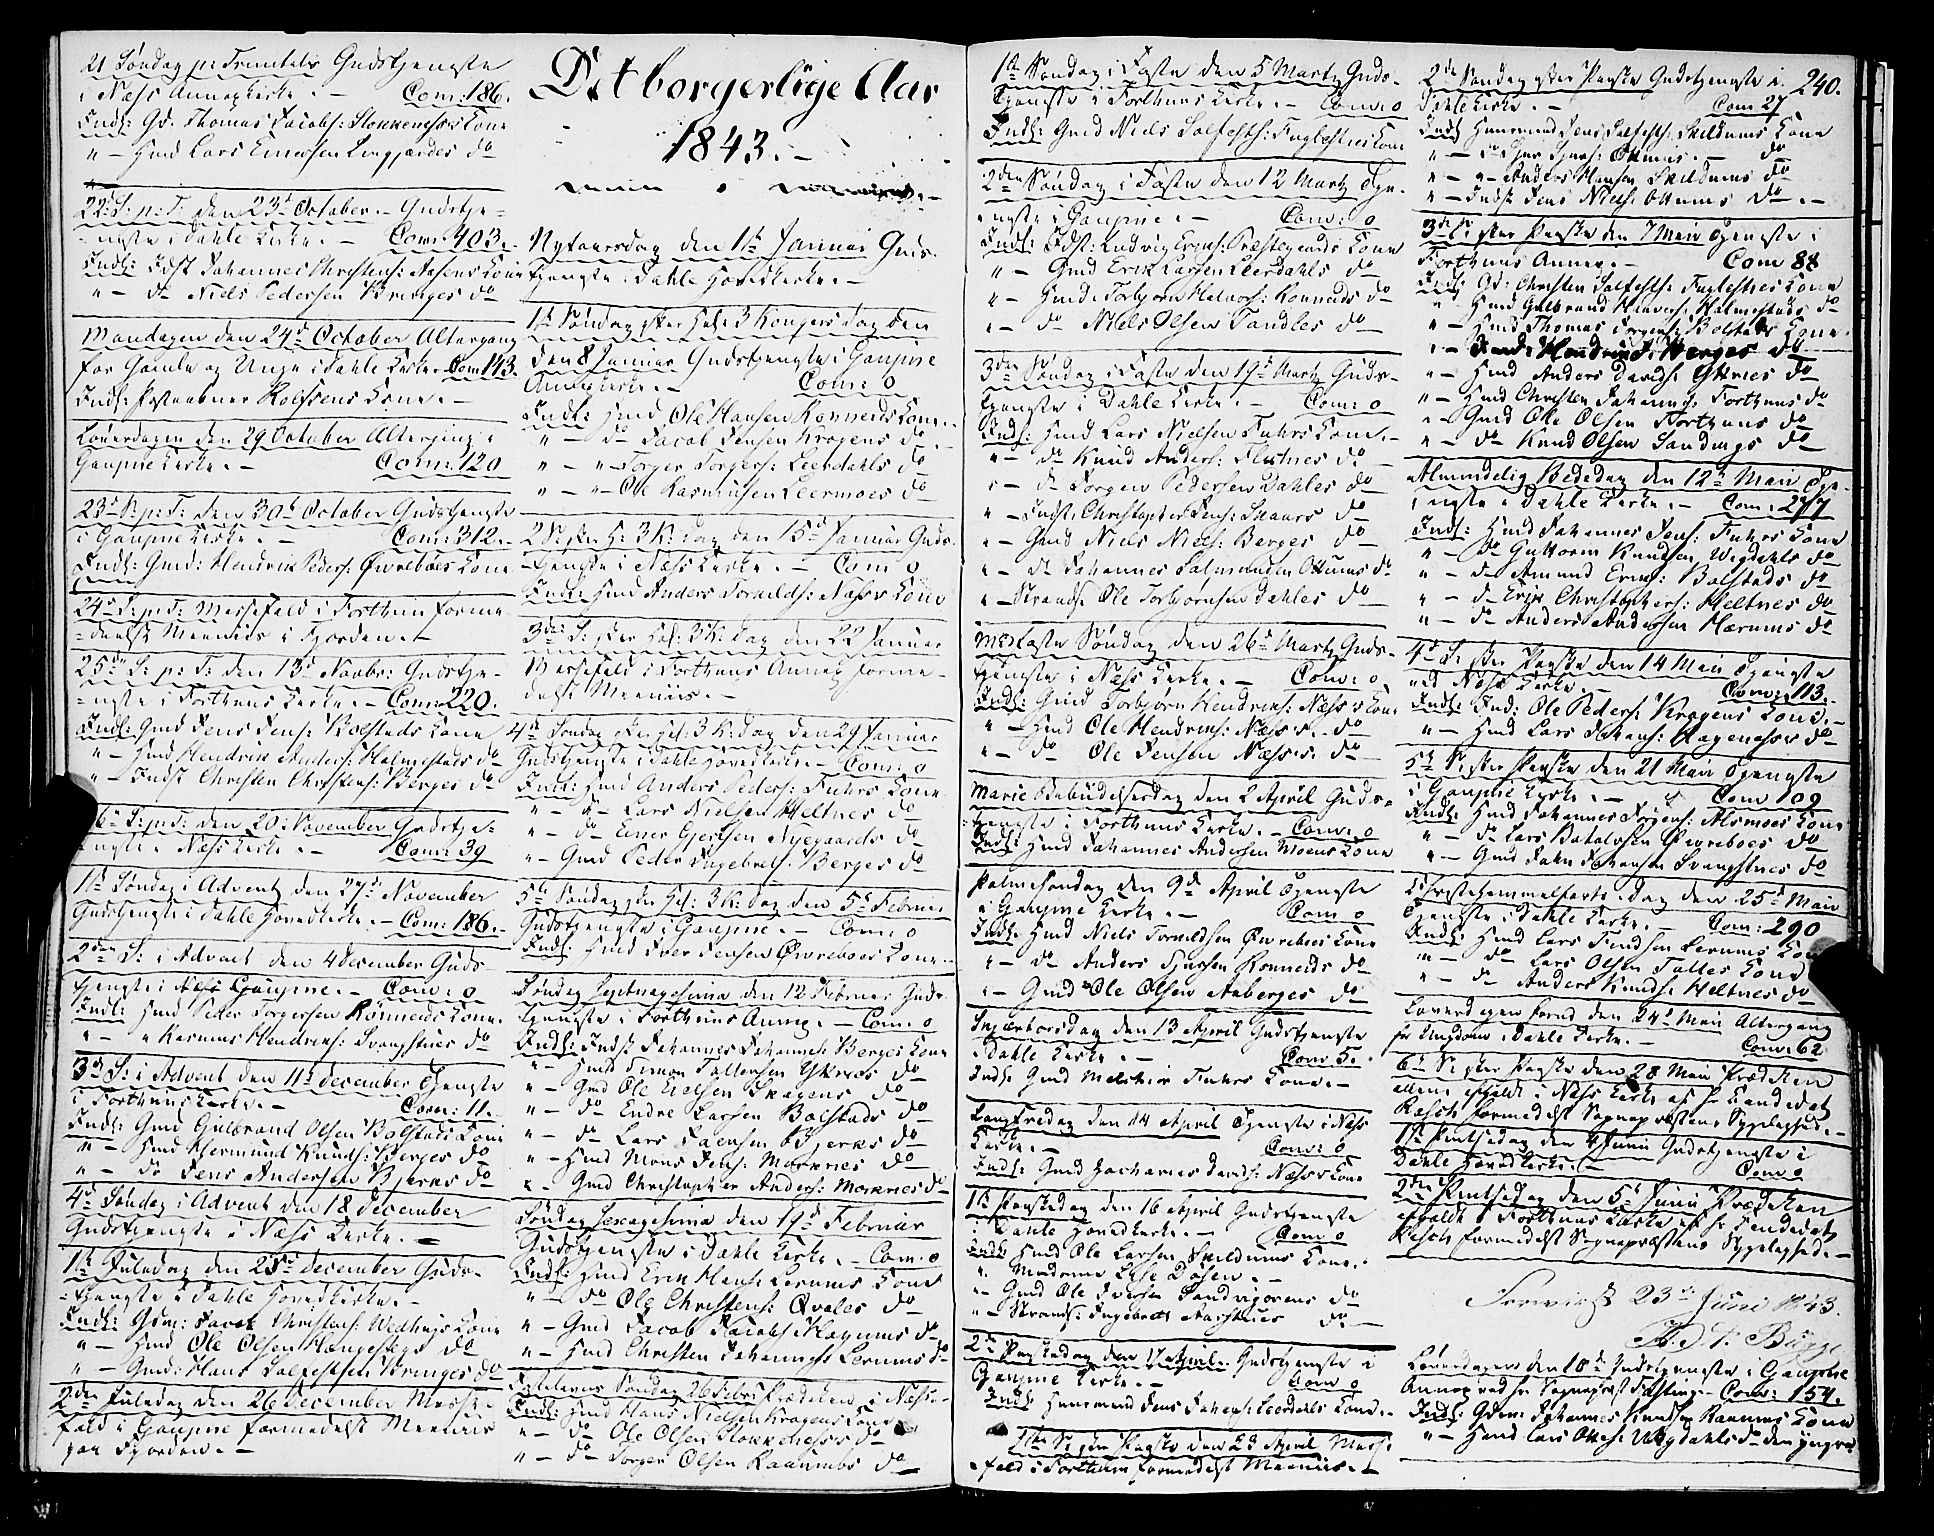 21 Søndag p: Trinitatis Gudstjeneste
i Næss Annexkirke. – Com: 186.
Indl: Gd. Thomas Jacobs: Kone
" – Hmd Lars Einersen do
22d S: p: T: den 23d October. – Gudstje-
neste i Dahle Kirke. – Com: 403.
Indl: Indst Johannes Christens: Aasens Kone
" – do Niels Pedersen Bringes do
Mandagen den 24d October Altergang
for Gamle og Unge i Dahle Kirke. Com 143.
Indl: Kone. –
Løverdagen den 29 October Altergang i
Gaupne Kirke. – Com: 120
23d S: p: T: den 30d October Gudstjeneste
i Gaupne Kirke. – Com: 312. –
Indl: Gmd: Hendrik Peders: Øvreboes Kone
24d S: p: T: Messefald i Forthun forme-
delst Meenis i Fjorden. –
25de S: p: T: den 13d Novbr: Gudstje-
neste i Forthuns Kirke. – Com: 220.
Indl: Gmd Jens Jens: Bolstads Kone
" – Hmd Hendrik Anders: Holmestads do
" – Indst Christen Christens: Berges do
26de S: p: T: den 20 November Gudstje-
neste i Næss Kirke. – Com: 39
1ste Søndag i Advent den 27d November
Gudstjeneste i Dahle Hovedkirke. – Com: 186. –
2den S: i Advent den 4 December Guds-
tjeneste i Gaupne. – Com: 0
Indl: Hmd Peder Torgersen Rønneids Kone.
" – " Rasmus Hendriks: do
3d S: i Advent den 11d December Tjeneste
i Forthuns Kirke. – Com: 11.
Indl: Gmd Gulbrand Olsen Bolstads Kone
" – Hmd Hermund Knuds: Berges do
" – do Jens Andersen Bjerks do
4d Søndag i Advent den 18 December
Gudstjeneste i Næss Kirke. –
1ste Juledag den 25d December Guds-
tjeneste i Dahle Hovedkirke. –
Indl: Gdm: Jacob Christens: Kone
" – Hmd Ole Olsen do
" – Gmd: Hans Salfestsen Bringes do
2den Juledag den 26 December Messe-
fald i Gaupne formedelst Meenis
paa Fjorden. –
Det borgerlige Aar
1843. –
Nytaarsdag den 1ste Januar Guds-
tjeneste i Dahle Hovedkirke. –
1ste Søndag efter Hel: 3 Kongers dag den
den 8 Januar Gudstjeneste i Gaupne
Annexkirke. – Com: 0
Indl: Hmd Ole Hansen Rønneids Kone. –
" – do Jacob Jensen Krogens do –
" – " – Torger Torgers: Leerdahls do
" – " – Ole Rasmusen Leermoes do
2d S: efter H: 3 K: dag den 15d Januar Guds-
tjeneste i Næss Kirke. – Com 0
Indl: Hmd Anders Næss's Kone
3de S: efter Hel: 3 K: dag den 22 Januar
Messefald i Forthuns Annex forme-
delst Meenis. –
4de Søndag efter Hel: 3 K: dag den 29 Januar
Gudstjeneste i Dahle Hovedkirke. – Com: 0
Indl: Hmd Anders Peders: Fuhrs Kone
" – " – Lars Nielsen Heltnes do
" – do Einer Nyegaards do
" – Gmd Peder Ingebrets: Berges do
5te Søndag efter Hel: 3 K: dag den 5d Februar
Gudstjeneste i Gaupne. – Com: 0
Indl: Hmd Iver Jensen Øvreboes Kone. –
Søndag Septuagesima den 12 Februar Guds-
tjeneste i Forthuns Annex. – Com: 0
Indl: Indst Johannes Johannes: Berges Kone
" – Hmd Simon do
" – Gmd Ole Skagens do
" – do Endre Larsen Bolstads do
" – do Lars Bjerks do
" – Hmd Mons Jens: Morknes do
" – Gmd Christopher Anders: Morknes do
Søndag Sexagesima den 19d Februar
Gudstjeneste i Dahle Kirke. – Com: 0
Indl: Hmd Erik Hans: Lerums Kone
" – do Ole Christens: Qvales do
" – Gmd Jacob Jacobs: do
" – Hmd Christen Johannes: Lerums do
Fastelavns Søndag 26 Febr: Prædiken i Næss. –
Indl: Hmd Hans Nielsen Krogens Kone
" – do Ole Olsen do
" – do Torger Olsen do
1ste Søndag i Faste den 5 Martz Guds-
tjeneste i Forthuns Kirke. – Com: 0
Indl: Gmd Niels Salfests: Fuglesteins Kone
2den Søndag i Faste den 12 Martz Tje-
neste i Gaupne. – Com: 0
Indl: Indst: Ludvig Præstegaards Kone
" – Gmd Erik Larsen Leerdahls do
" – Hmd: Torbjørn Halvors: Rønneids do
" – do Niels Olsen do
3die Søndag i Faste den 19d Martz Guds-
tjeneste i Dahle Kirke. – Com: 0
Indl: Hmd Lars Nielsen Fuhrs Kone. –
" – do Knud Anders: do
" – do Jørgen Pedersen Dahles do
" – Indst. Christopher Jens: do
" – Gmd Niels Niels: Berges do
" – do Johannes Salmunden Ottums do
" – Strands: Ole Torbjørnsen Dahles do
Midfaste Søndag den 26d Martz Guds-
tjeneste i Næss Kirke. – Com: 0
Indl: Gmd Torbjørn Hendriks: Næss's Kone
" – Hmd Ole Hendriks: Næss's. do
" – do Ole Jensen Næss's. do
Marie Bebudelsesdag den 2 April Guds-
tjeneste i Forthuns Kirke. – Com: 0
Indl: Hmd Johannes Andersen Moens Kone
Palmesøndag den 9d April Tjeneste
i Gaupne Kirke. – Com 0
Indl: Hmd Niels Øvreboes Kone
" – do Anders Rønneids do
" – Gmd Ole Olsen Aaberges do
Skjærthorsdag den 13 April Gudstjeneste
i Dahle Kirke. – Com: 5. –
Indl: Gmd Fuhrs Kone. –
Langfredag den 14 April Tjeneste i Næss
Kirke. – Com: 0
Indl: Gmd Zacharias Davids: Næss's Kone
1ste Paaskedag den 16 April Gudstjeneste
i Dahle Hovedkirke. – Com 0
Indl: Hmd Ole Larsen Skildums Kone.
" – Madame Dosen. –
" – Gmd Ole Iversen do
" – Strands: Ingebret do –
2den Paaskedag den 17 April. Gudstjeneste i
Gaupne Kirke. – Com 0
Indl: Huusmand Jens Johans: Leerdahls Kone. –
1ste S: efter Paaske den 23 April Messe-
fald i Forthun formedelst Meenis. –
240.
2den Søndag efter Paaske Gudstjeneste i
Dahle Kirke. – Com 27
Indl Huusmand Jens Salfests: Skildums Kone
" – do Ottums. – do
" – " – Anders Hansen Skildums do
" – Indst Jens Niels: Ottums do –
3die S: efter Paaske den 7 Mai Tjeneste i
Forthuns Annex. – Com 88
Indl: Gd: Christen Salfests: Fuglesteins Kone
" – Hmd Gulbrand Halvors: Holmestads do
" – Hmd Thomas Bolstads Kone
" – Hendrik J: Berges do
" – Hmd Anders Davids: Yttrees do
" – Hmd Christen Johannes: Forthuns do
" – Gmd Ole Olsen Forthuns do
" – do Knud Olsen do
Almindelig Bededag den 12d Mai Tje-
neste i Dahle Kirke. – Com: 277
Indl: Hmd Johannes Jens: Fuhrs Kone
" – do Guttorm Knudsen Wigdahls do
" – do Amund Bolstads do
" – do Erik Christophers: Heltnes do
" – do Anders Andersen Hærums do
4d S: efter Paaske den 14 Mai Tjeneste
ved Næss Kirke. – Com: 113.
Indl: Ind: Ole Peders: Krogens Kone. –
" – Hmd Lars Johans: do
5te S: efter Paaske den 21 Mai Tjeneste
i Gaupne Kirke. – Com 109
Indl: Hmd Johannes Alsmoes Kone
" – do Lars Øvreboes do
" – Gmd John Johansen do
Christi Himmelfarts-dag den 25d Mai
Tjeneste i Dahle Kirke. – Com: 290
Indl: Hmd Lars Lerums Kone
" – do Lars Olsen Kone
" – do Anders Knuds: Heltnes do
Løverdagen forud den 24d Mai Altergang
for Ungdom i Dahle Kirke. – Com: 62
6te S: efter Paaske den 28 Mai Prædiken
alene i Næss Kirke af Hr Candidat
Resch formedelst Sognepræstens Sygelighed. –
1ste Pintsedag den 4 Juni Gudstjeneste i
Dahle Hovedkirke. – Com 0
2den Pintsedag den 5d Juni Prædiken
i Forthuns Kirke af Hr Candidat
Resch formedelst Sognepræstens Sygelighed. –
23d Juni 1843.
Løverdagen den 10d Gudstjeneste i Gaupne
Annex ved Hr Sognepræst – Com: 154. –
Indl: Gdm: Johannes Knudsen Kone
" – Hmd Lars Wigdahls do den yngre